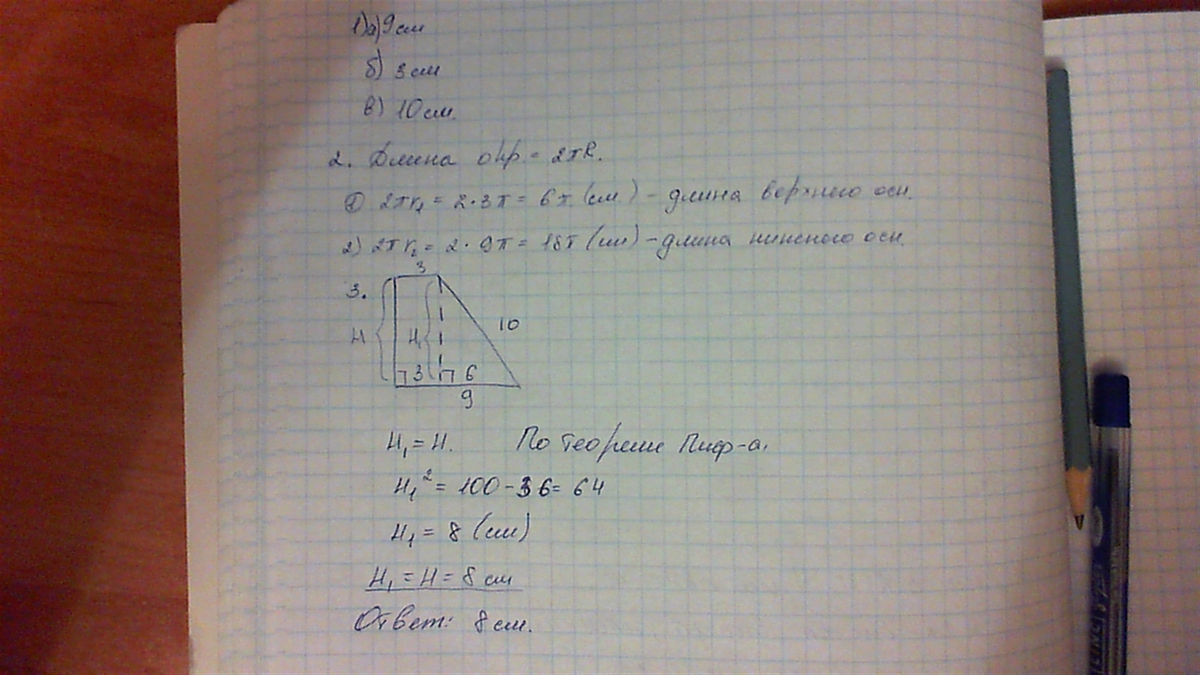 1)а) 9 см
б) 3 см
в) 10 см.
2. Длина окр. = 2πR.
1) 2πr₁ = 2·3π = 6π (см) – длина верхнего осн.
2) 2πr₂ = 2·9π = 18π (см) – длина нижнего осн.
3
3.
H
H₁
10
3
6
9
H₁ = H. По теореме Пиф-а.
H₁² = 100 – 36 = 64
H₁ = 8 (см)
H₁ = H = 8 см
Ответ: 8 см.